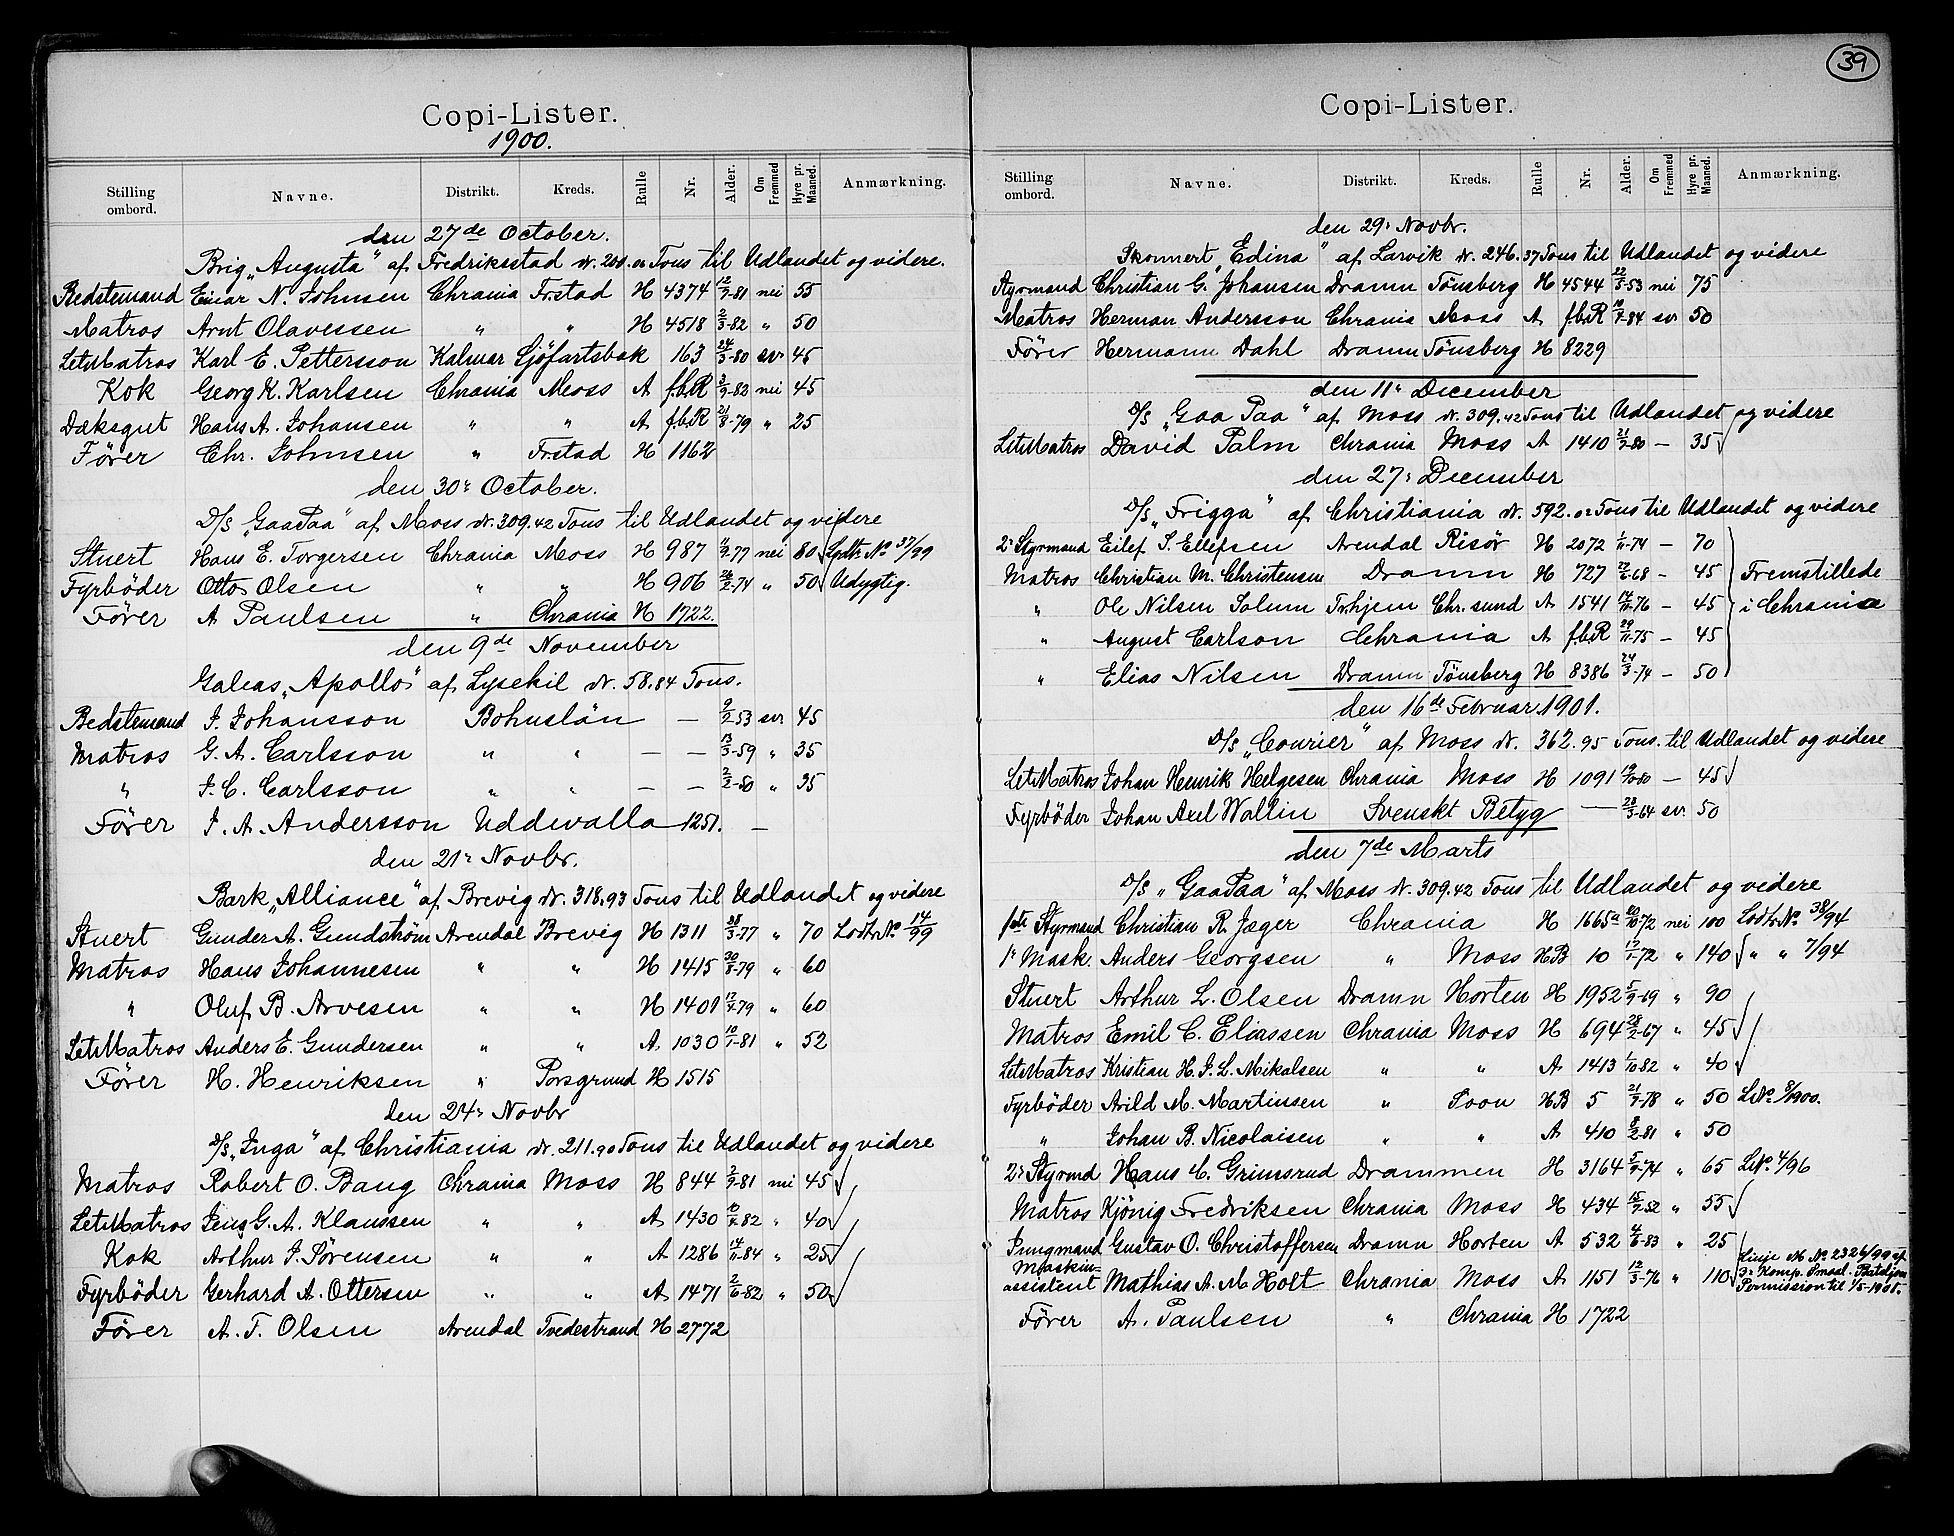 Copi-Lister.
1900.
Stilling ombord. Navne. Distrikt. Kreds. Rulle Nr. Alder. Om Fremmed Hyre pr. Maaned. Anmærkning.
den 27de October.
Brig „Augusta" af Fredriksstad dr. 200. Tons til Udlandet og videre.
Bedstemand Einar N. Johnsen Chrania Frstad H 4374 12/9-81 nei 55
Matros Arnt Olavessen " " H 4518 2/3-82 " 50
LetMatros Karl E. Pettersson Kalmar Sjöfartsbok 163 24/3-80 sv 45
Kok Georg K. Karlsen Chrania Moss A f.b.R 3/9-82 nei 45
Dæksgut Hans A. Johansen " " A fbR 21/8-79 " 25
Fører Chr. Johnsen " Frstad H 1162
den 30' October.
D/S „GaaPaa" af Moss dr. 309.42 Tons til Udlandet og videre
Stuert Hans E. Torgersen Chrania Moss H 987 11/9-77 nei 80 No 37/99
Fyrbøder Otto Olsen " " H 906 26/2-74 " 50 Udygtig.
Fører A Paulsen " Chrania H 1722.
den 9de November
Galeas „Apollo" af Lysekil dr. 58.84 Tons.
Bedstemand J. Johansson Bohuslän — 9/2-53 sv 45
Matros G. A. Carlsson " " — — 13/3-59 " 35
" J. C. Carlsson " " — — 2/2-80 " 35
Fører J. A. Andersson Uddevalla 1251. —
den 21' Novbr.
Bark „Alliance" af Brevig dr. 318.93 Tons til Udlandet og videre
Stuert Gunder A. Gundstrøm Arendal Brevig H 1311 28/3-77 " 70 No 14/99
Matros Hans Johannesen " " H 1415 20/8-79 " 60
" Oluf B. Arvesen " " H 1401 17/4-79 " 60
LetMatros Anders E. Gundersen " " A. 1030 10/1-81 " 52
Fører H. Henriksen " Porsgrund H 1515
den 24' Novbr
D/S „Inga" af Christiania dr. 211.90 Tons til Udlandet og videre
Matros Robert O. Bang Chrania Moss H 844 2/9-81 nei 45
LetMatros Jens G. A. Klaussen " " A 1430 10/4-82 " 40
Kok Arthur J. Sørensen " " A 1286 14/11-84 " 25
Fyrbøder Gerhard A. Ottersen " " A 1471 2/6-82 " 50
Fører A. T. Olsen Arendal Tvedestrand H 2772
39
Copi-Lister.
Stilling ombord. Navne. Distrikt. Kreds. Rulle Nr. Alder. Om Fremmed Hyre pr. Maaned. Anmærkning.
den 29' Novbr.
Skonnert „Edina" af Larvik dr. 246.37 Tons til Udlandet og videre
Styrmand Christian G. Johansen Dramn Tønsberg H 4544 22/5-53 nei 75
Matros Herman Andersson Chrania Moss A fbR 10/7-84 sv 50
Fører Hermann Dahl Dramn Tønsberg H 8229
den 11' December
D/S „Gaa Paa" af Moss dr. 309.42 Tons til Udlandet og videre
LetMatros David Palm Chrania Moss A 1410 21/7-80 — 35
den 27' December
D/S „Frigga" af Christiania dr. 592. Tons til Udlandet og videre
2' Styrmand Eilef S. Ellefsen Arendal Risør H 2072 1/11-74 — 70
Matros Christian M. Christensen Dramn H 727 22/6-68 — 45 Fremstillede
" Ole Nilsen Solum Trhjem Chr.sund A 1541 14/11-76 — 45 i Chrania
" August Carlson Chrania A fbR 29/11-75 — 45
" Elias Nilsen Dramn Tønsberg H 8386 24/3-74 — 50
den 16de Februar 1901.
D/S „Courier" af Moss dr. 362.95 Tons. til Udlandet og videre
LetMatros Johan Henrik Helgesen Chrania Moss H 1091 19/10-80 — 45
Fyrbøder Johan Axel Wallin Svenskt Betyg — 28/3-64 sv. 50
den 7de Marts
D/S „GaaPaa" af Moss dr. 309.42 Tons til Udlandet og videre
1ste Styrmand Christian R. Jæger Chrania H 1665a 10/10-72 nei 100 No. 38/94
1' Mask. Anders Georgsen " Moss HB 10 17/1-72 " 140 " " 7/94
Stuert Arthur L. Olsen Dramn Horten H 1952 5/9-69 " 90
Matros Emil C. Eliassen Chrania Moss H 694 28/2-67 " 45
LetMatros Kristian H. J. L. Mikalsen " " A 1413 1/10-82 " 40
Fyrbøder Arild M. Martinsen " Soon HB 5 21/7-78 " 50 LNo. 9/1900.
" Johan B. Nicolaisen " " A 410 8/2-81 " 50
2' Styrmd Hans C. Grimsrud Drammen H 3164 5/9-74 " 65 LNo. 4/96
Matros Kjönig Fredriksen Chrania Moss H 434 15/7-52 " 55
Jungmand Gustav O. Christoffersen Dramn Horten A 532 4/6-83 " 25
Maskin-assistent Mathias A. M Holt Chrania Moss A 1151 12/3-76 " 110 Linje No 2326/99 af Komp. Smaal. Bataljon Permission til 1/5-1901.
Fører A. Paulsen " Chrania H 1722